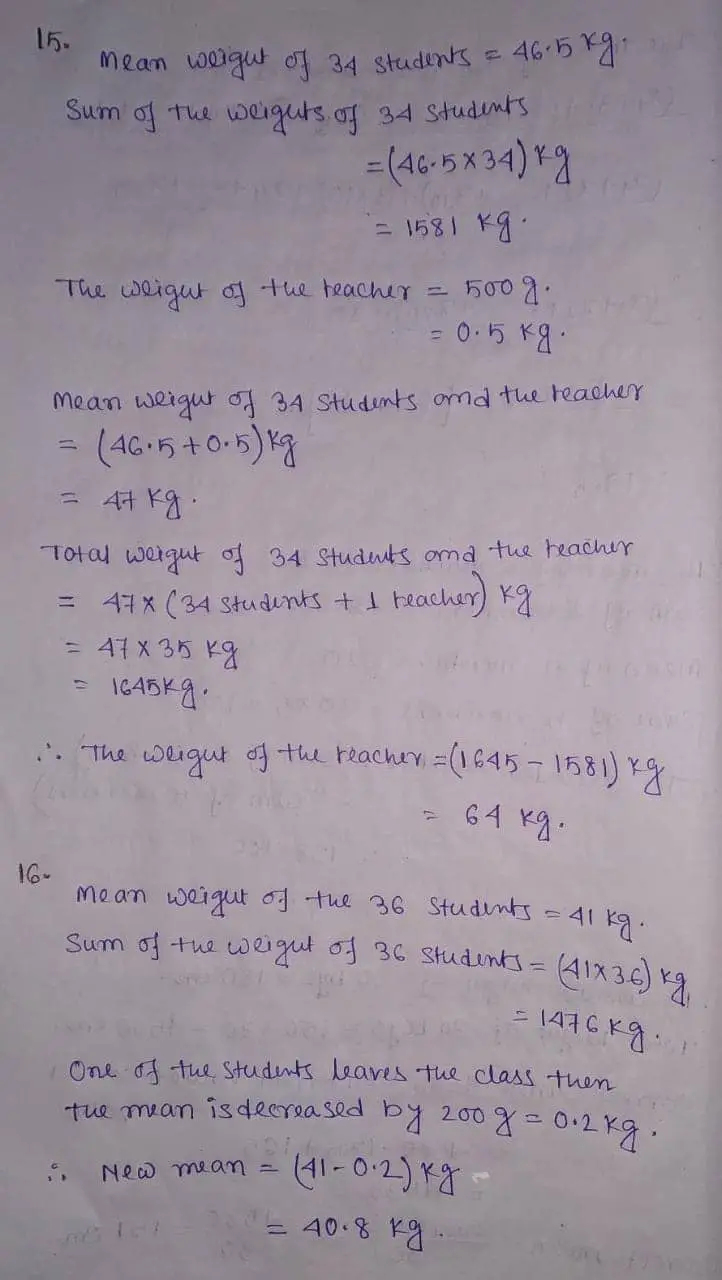 15.
Mean weight of 34 students = 46.5 kg.
Sum of the weights of 34 students
=(46.5×34) kg
= 1581 kg.
The weight of the teacher = 500 g.
= 0.5 kg.
Mean weight of 34 students and the teacher
= (46.5+0.5) kg
= 47 kg.
Total weight of 34 students and the teacher
= 47 × (34 students + 1 teacher) kg
= 47 × 35 kg
= 1645kg.
∴ The weight of the teacher =(1645 – 1581) kg
= 64 kg.
16.
Mean weight of the 36 students = 41 kg.
Sum of the weight of 36 students = (41×36) kg
= 1476 kg.
One of the students leaves the class then
the mean is decreased by 200 g = 0.2 kg.
∴ New mean = (41-0.2) kg
= 40.8 kg.